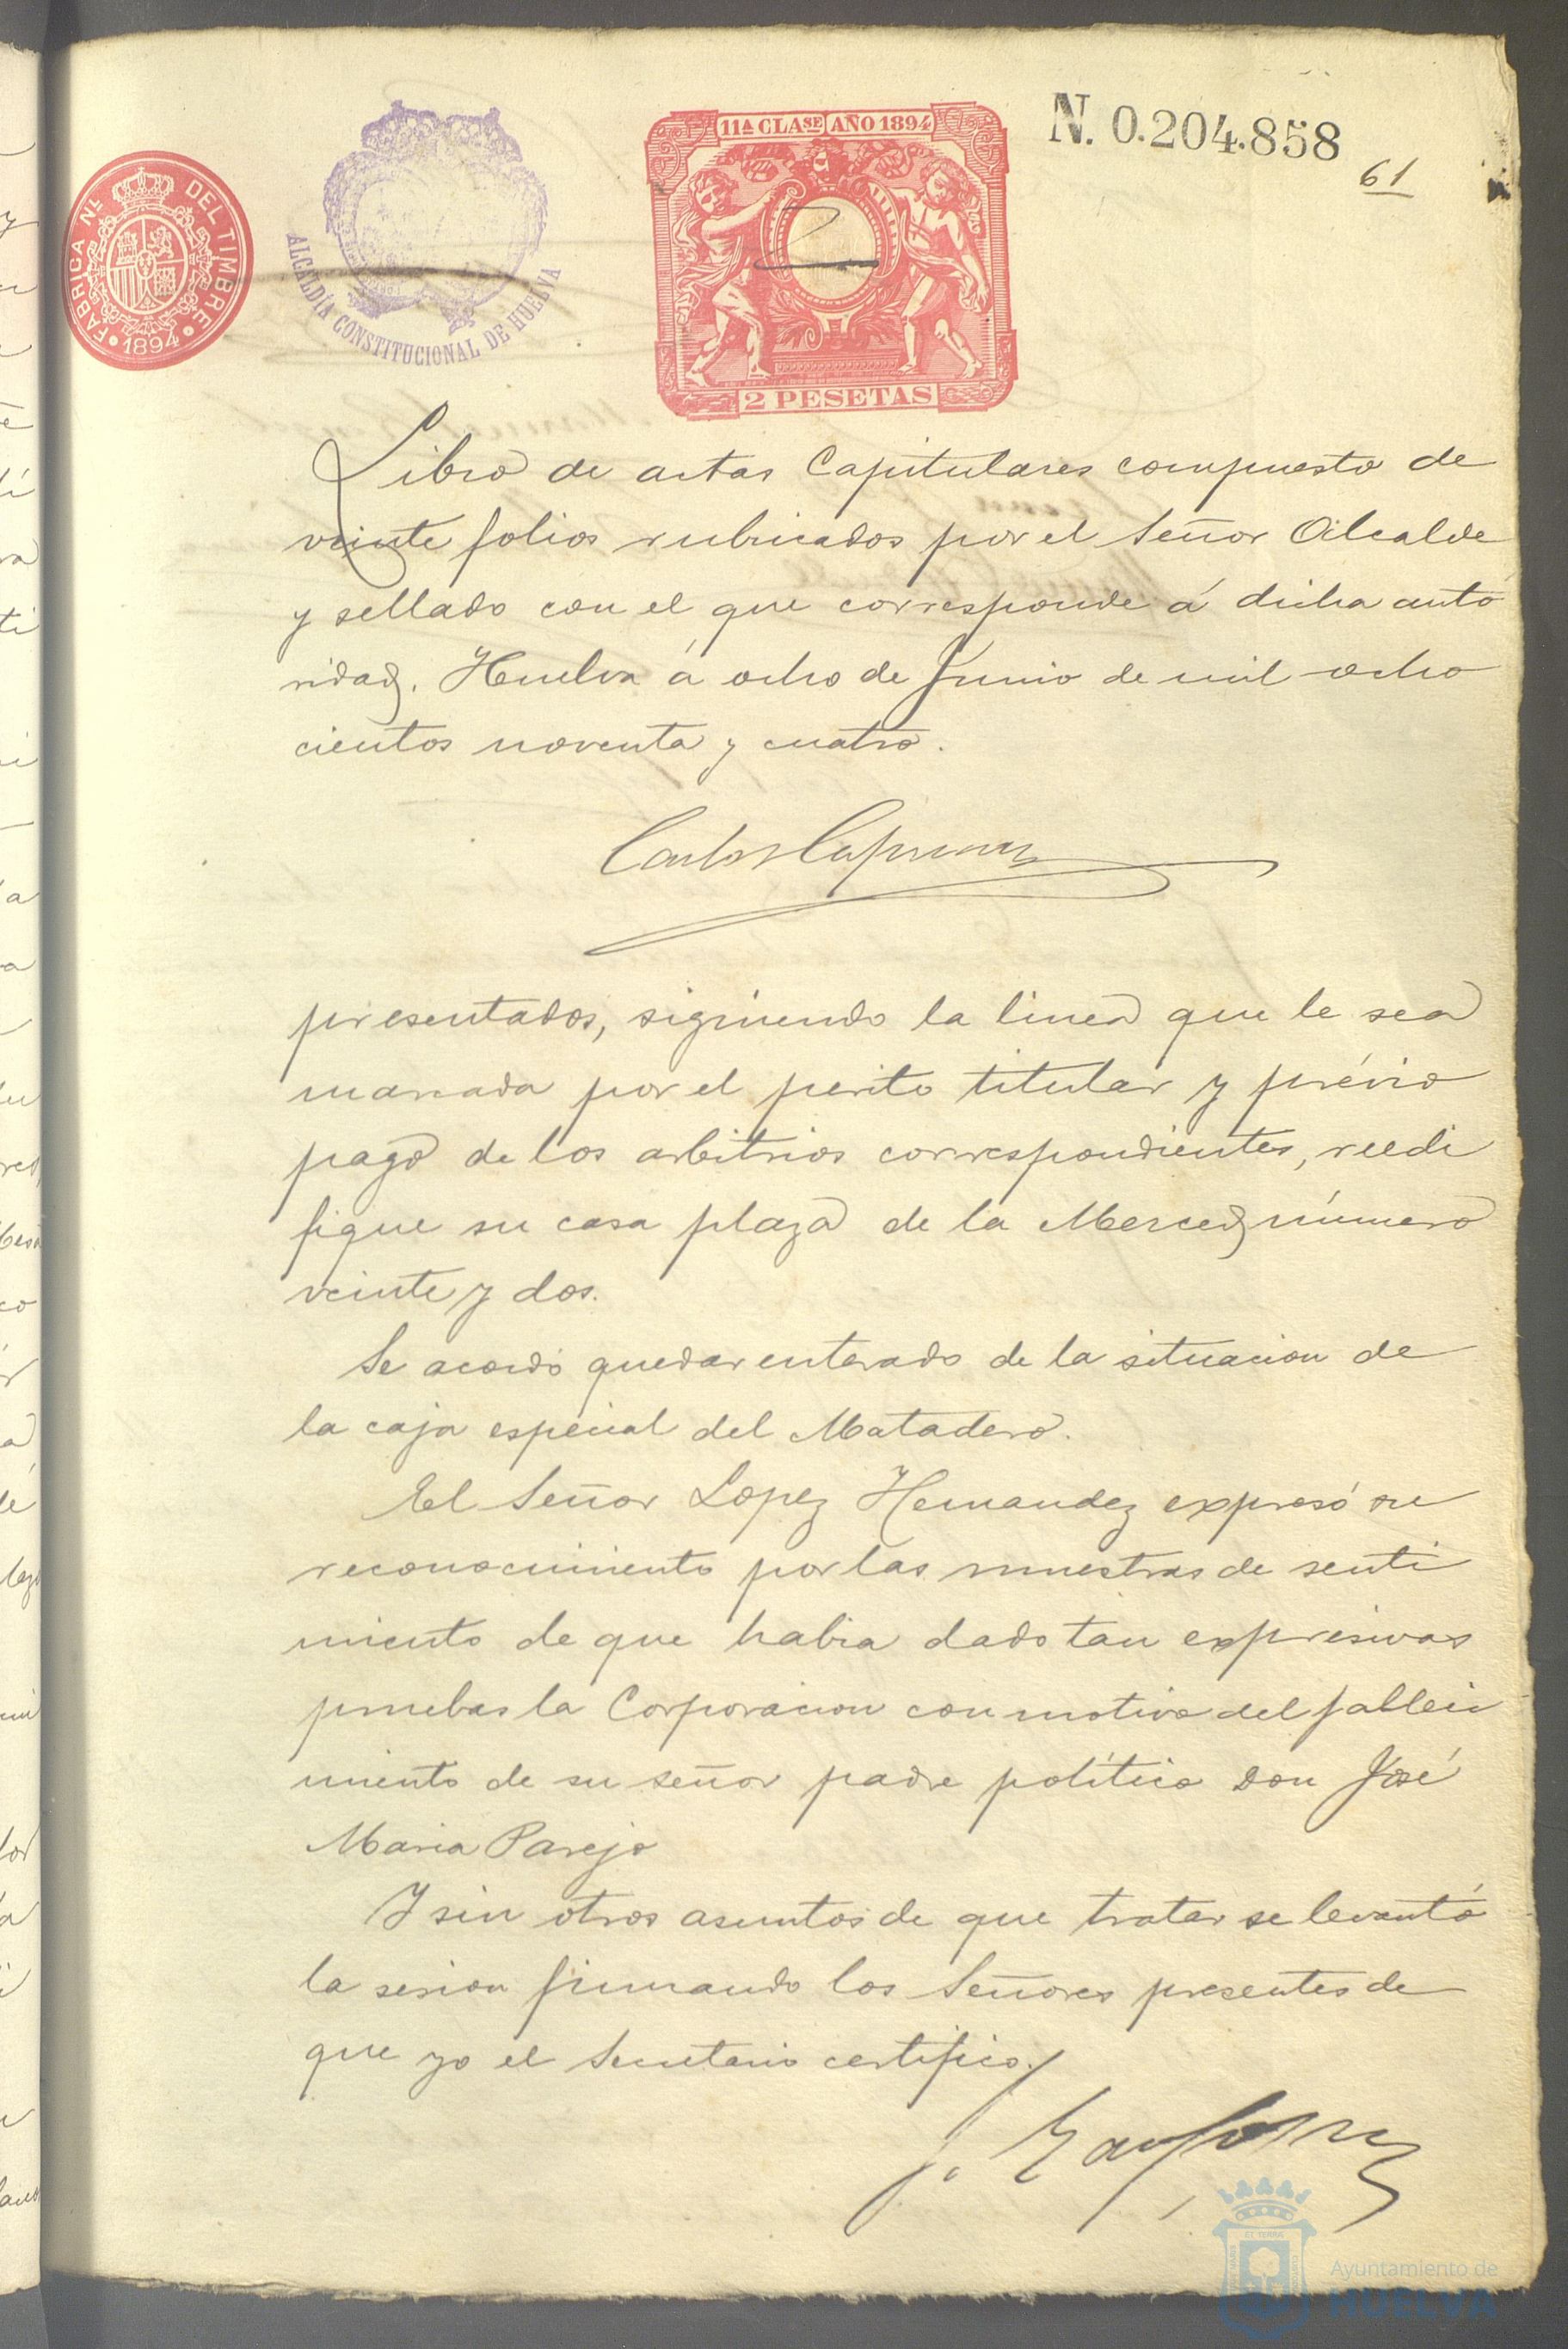 FABRICA NL. DEL TIMBRE
1894
ALCALDÍA CONSTITUCIONAL DE HUELVA
11A CLASE AÑO 1894
2 PESETAS
N. 0.204.858
61
Libro de actas Capitulares compuesto de
veinte folios rubricados por el Señor Alcalde
y sellado con el que corresponde á dicha auto
ridad. Huelva á ocho de Junio de mil ocho
cientos noventa y cuatro.
Carlos
presentados, siguiendo la linea que le sea
marcada por el perito titular y prévio
pago de los arbitrios correspondientes, reedi
fique su casa plaza de la Merced número
veinte y dos.
Se acordó quedar enterado de la situacion de
la caja especial del Matadero.
El Señor Lopez Hernandez expresó su
reconocimiento por las muestras de senti
miento de que habia dado tan expresivas
pruebas la Corporacion con motivo del falleci
miento de su señor padre político Don José
Maria Parejo
Y sin otros asuntos de que tratar se levantó
la sesion firmando los Señores presentes de
que yo el Secretario certifico.
J.
Ayuntamiento de
HUELVA